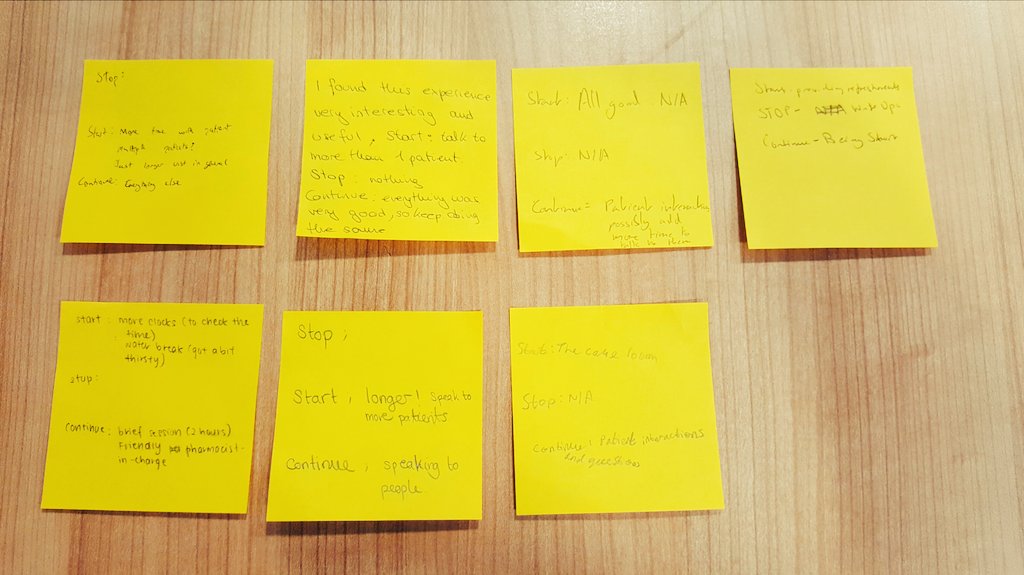 Stop:
Start: More time with patient
multiple patients?
Just longer visit in general
Continue: Everything else
I found this experience
very interesting and
useful, Start: talk to
more than 1 patient.
Stop: nothing
Continue: everything was
very good, so keep doing
the same
Start: All good. N/A
Stop: N/A
Continue = Patient interaction
possibly add
more time to
talk to them
Start: providing refreshments
STOP - N/A
Continue - Being
start: more clocks (to check the
time)
water break (got a bit
thirsty)
stop:
continue: brief session (2 hours)
Friendly pharmacist-
in-charge
Stop;
Start; longer! Speak to
more patients
Continue; speaking to
people
Start: The
Stop: N/A
Continue: Patient interactions
and questions